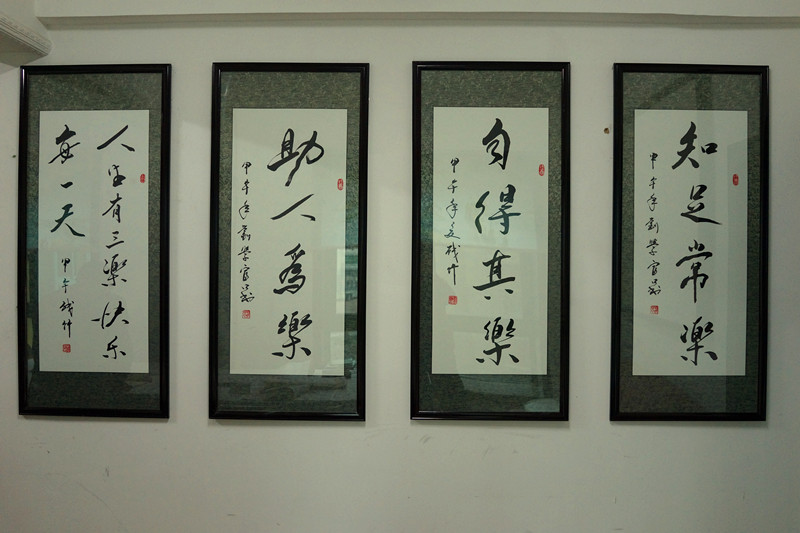 知足常樂
甲午年劉學官
自得其樂
甲午年
助人爲樂
甲午年劉學官
人生有三樂快乐
每一天
甲午